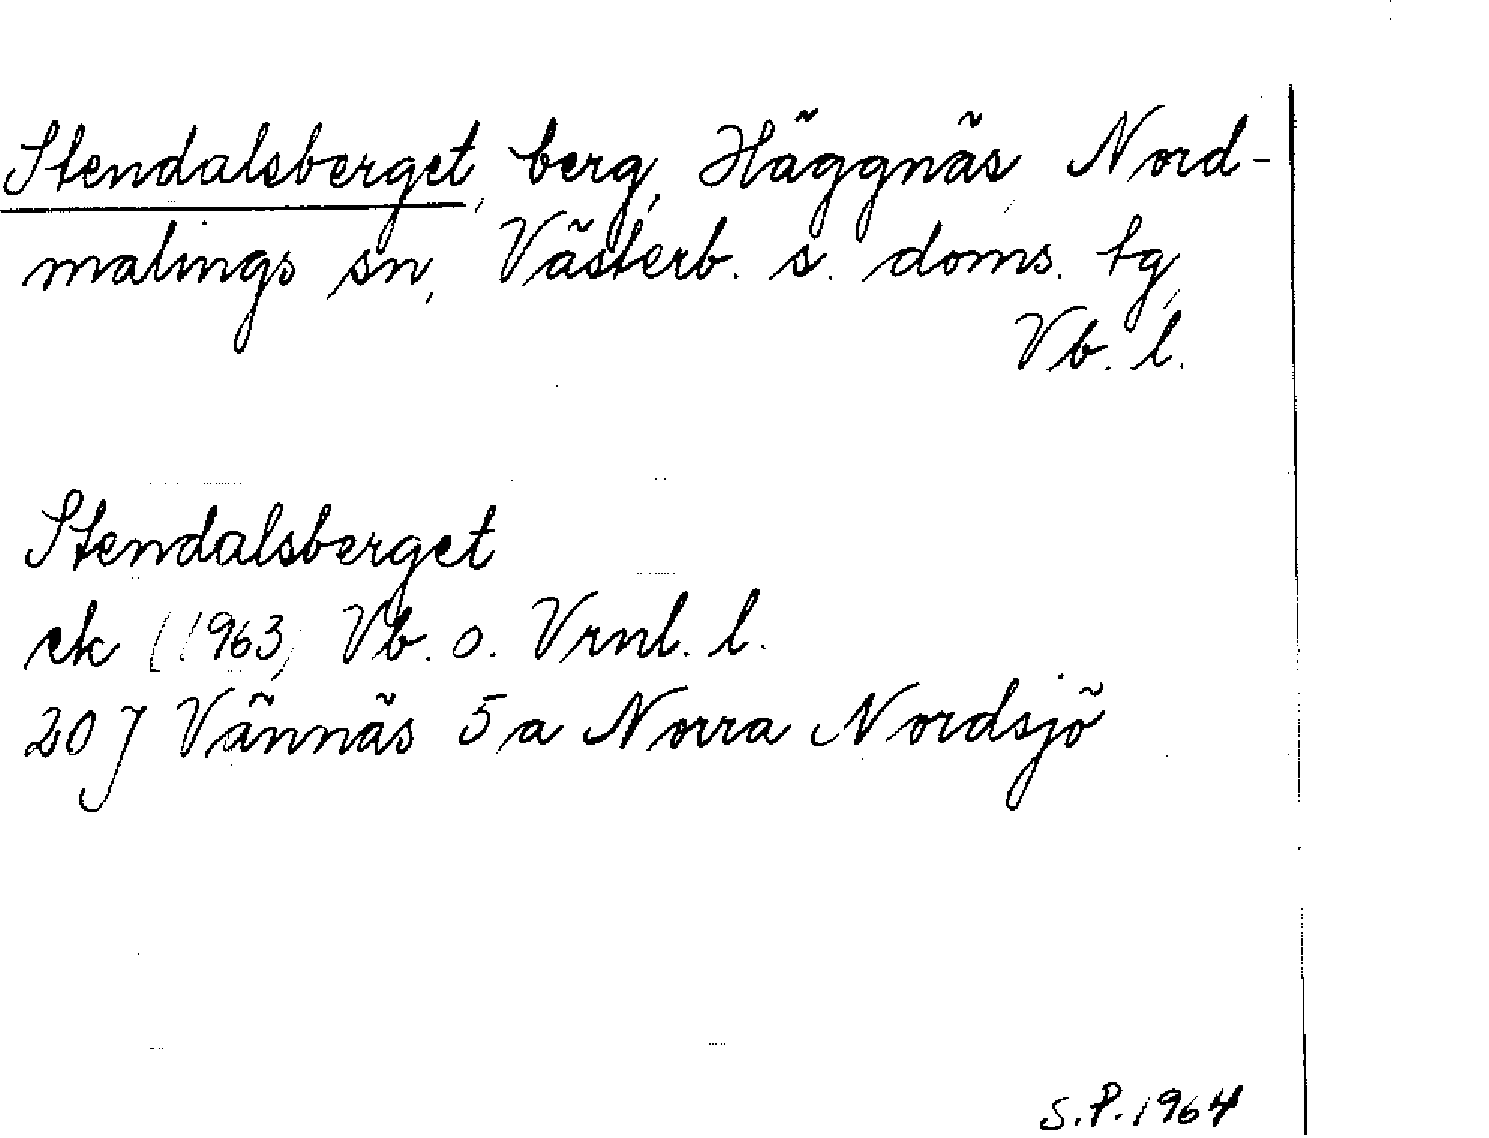 Stendalsberget, berg, Häggnäs, Nord-
malings sn, Västerb. s. doms. tg,
Vb. l.
Stendalsberget
ek (1963) Vb. o. Vrnl. l.
20 J Vännäs 5 a Norra Nordsjö
S.P. 1964